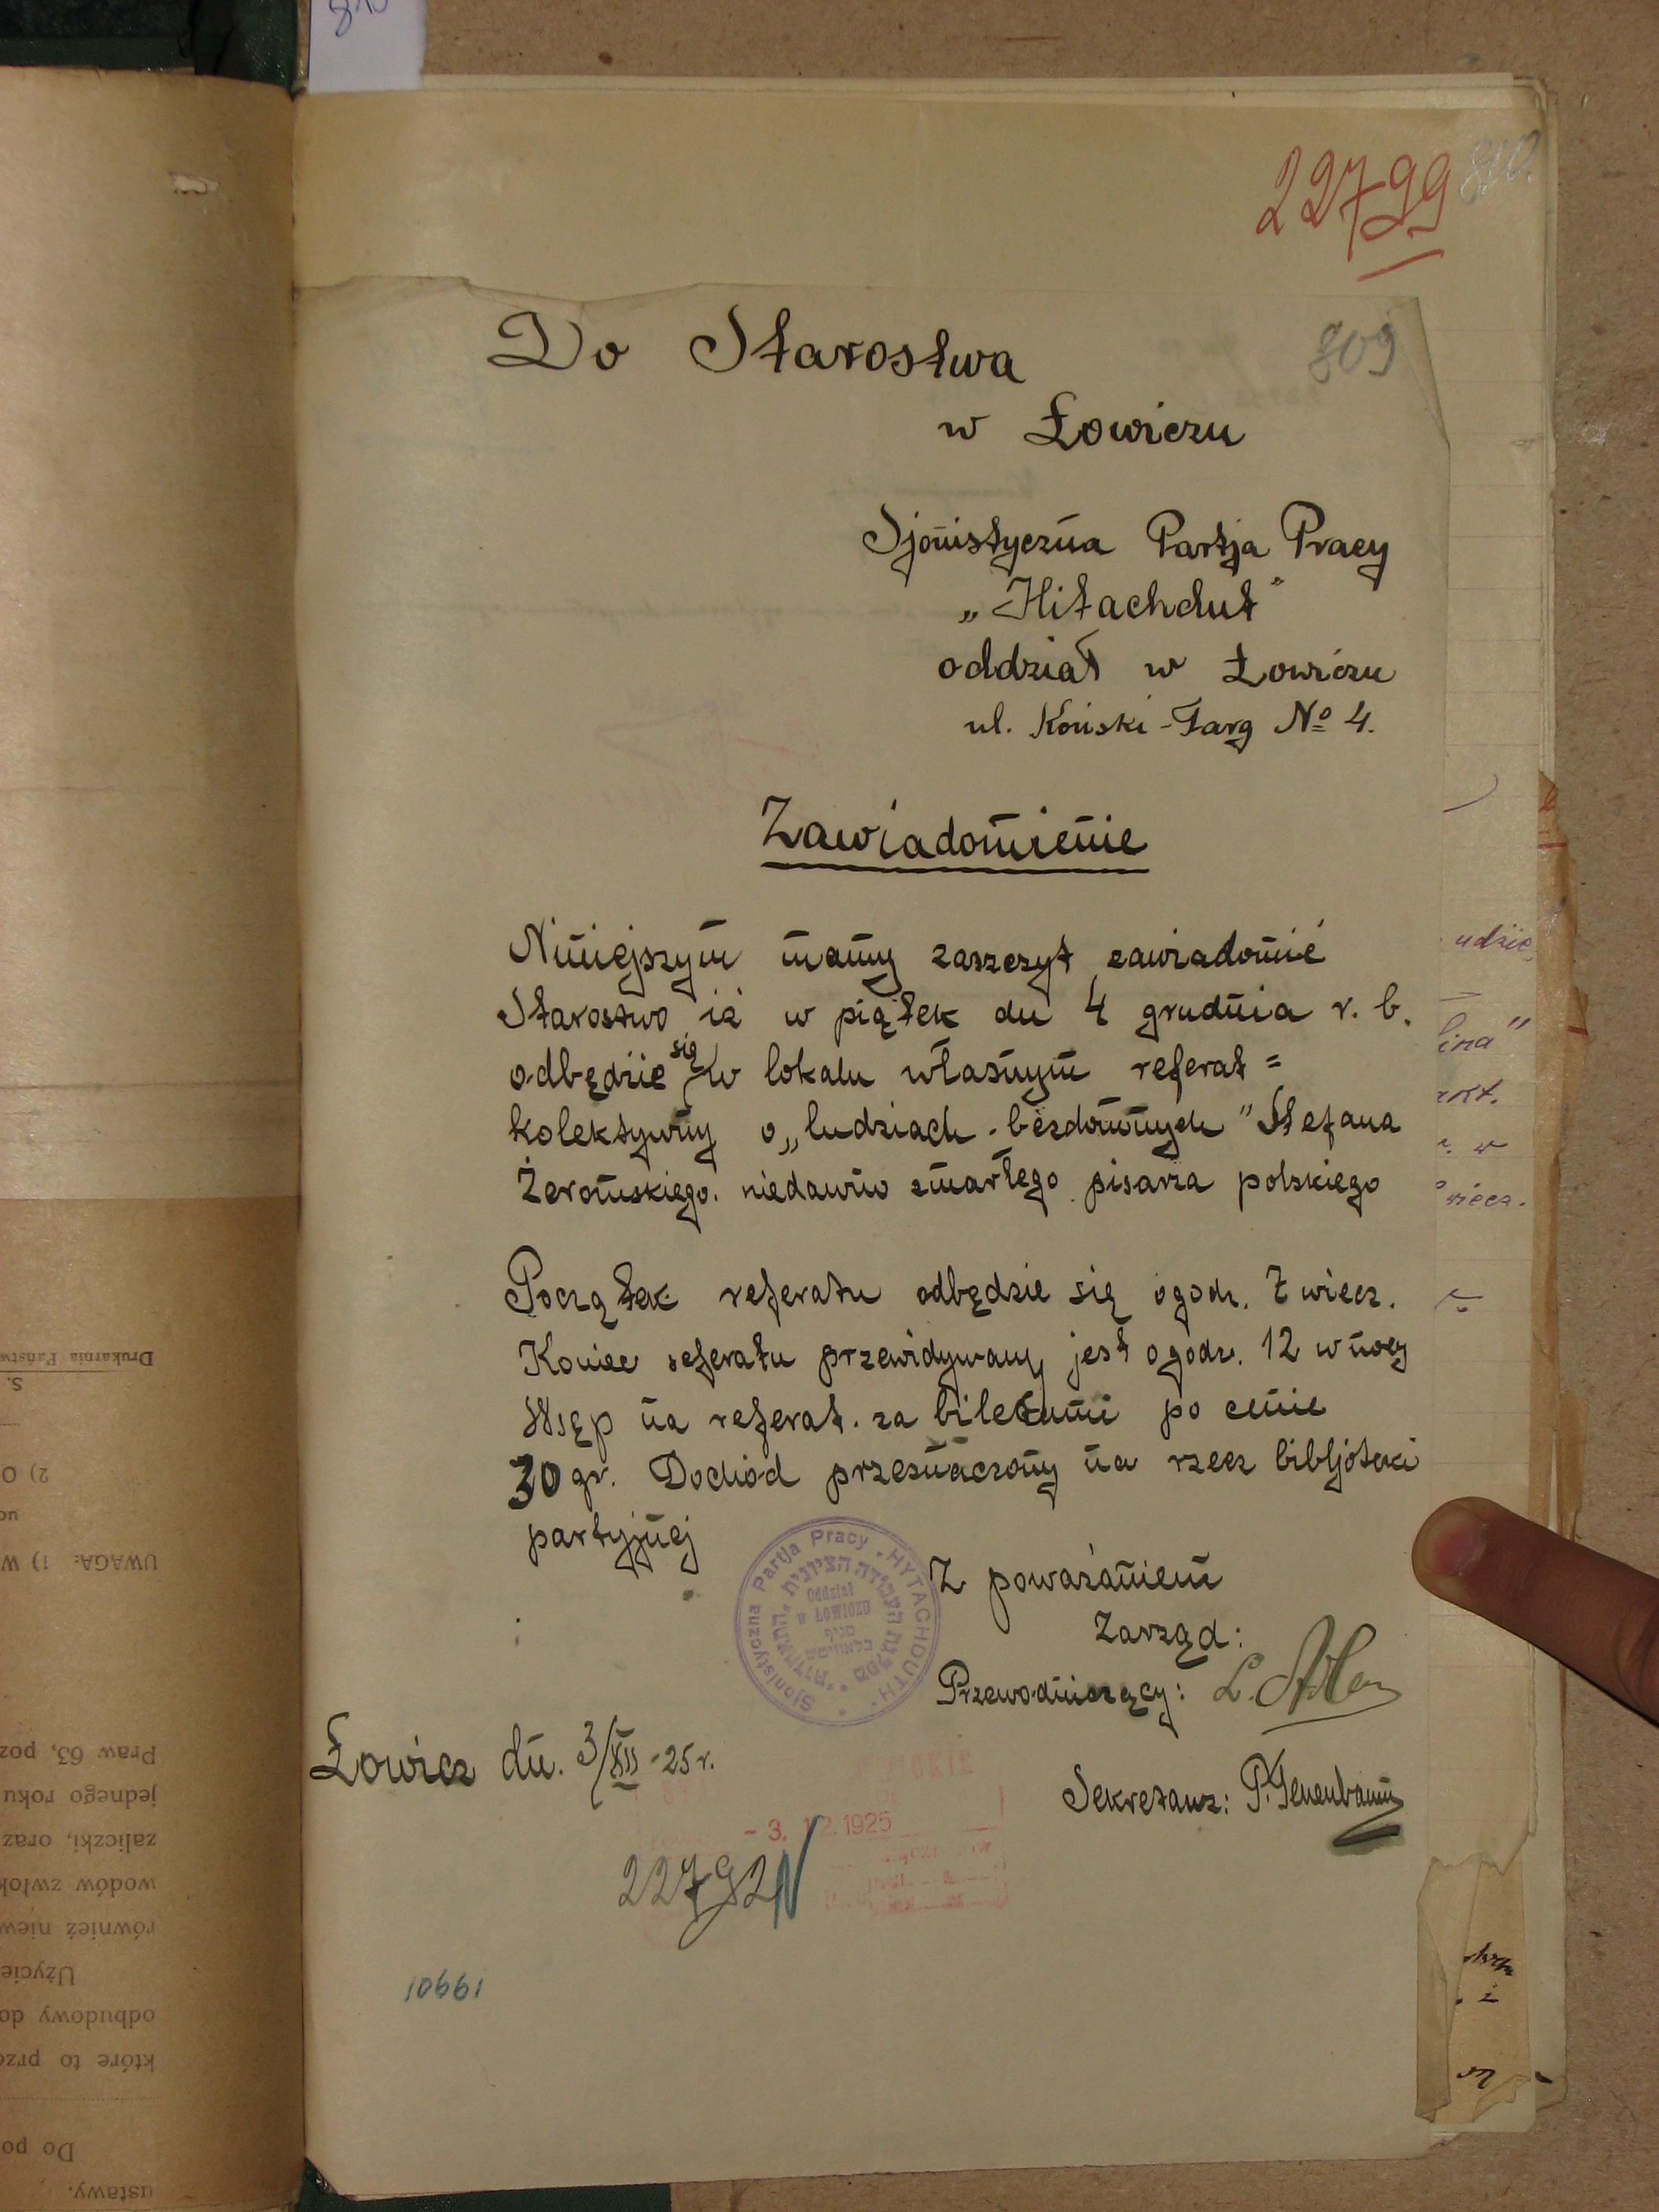 22799
810.
809
Do Starostwa
w Łowiczu
Sjonistyczna Partja Pracy
„Hitachdut"
oddział w Łowiczu
ul. Koński-Targ No 4.
Zawiadomienie
Niniejszym mamy zaszczyt zawiadomić
Starostwo iż w piątek dn 4 grudnia r. b.
odbędzie się w lokalu własnym referat =
kolektywny o „ludziach-bezdomnych" Stefana
Żeromskiego. niedawno zmarłego pisarza polskiego
Początek referatu odbędzie się o godz. 7 wiecz.
Koniec referatu przewidywany jest o godz. 12 w nocy
Wsęp na referat. za biletami po cenie
30 gr. Dochód przeznaczony na rzecz bibljoteki
partyjnej
Z poważaniem
Zarząd:
Przewodniczący: L.
Sekretarz: P. Tenenbaum
Sjonistyczna Partja Pracy "HYTACHDUTH"
Oddział
w ŁOWICZU
Łowicz dn. 3/XII-25 r.
- 3. 12. 1925
22792
10661
udzie
lina"
r. w
wiecz.
Drukarnia Państw
S.
2) O
UWAGA: 1) W
Praw 63, poz
jednego roku
zaliczki, oraz
wodów zwłok
również niew
Użycie
odbudowy do
które to prze
Do po
ustawy.